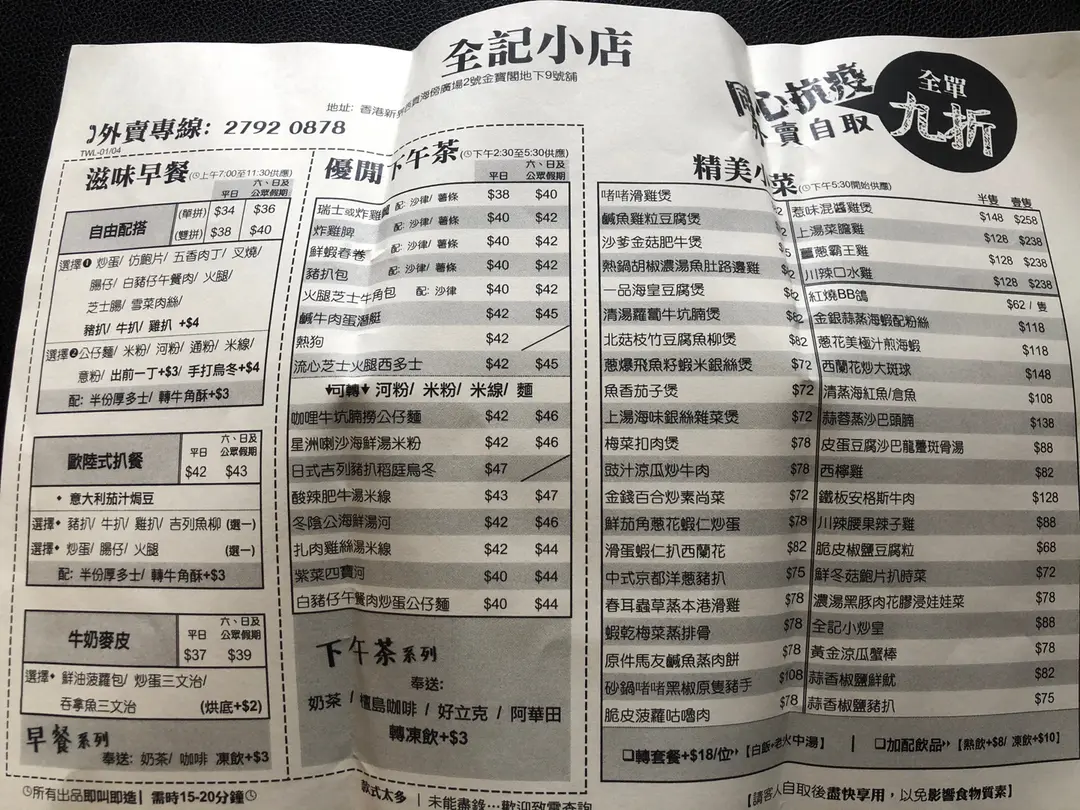 全記小店
地址: 香港新界西貢海傍廣場2號金寶閣地下9號舖
外賣專線: 2792 0878
TWL-01/04
同心抗疫
外賣自取
全單
九折
滋味早餐(上午7:00至11:30供應)
平日 六、日及公眾假期
自由配搭 (單拼) $34 $36
(雙拼) $38 $40
選擇❶ 炒蛋/ 仿鮑片/ 五香肉丁/ 叉燒/
腸仔/ 白豬仔午餐肉/ 火腿/
芝士腸/ 雪菜肉絲/
豬扒/ 牛扒/ 雞扒 +$4
選擇❷公仔麵/ 米粉/ 河粉/ 通粉/ 米線/
意粉/ 出前一丁+$3/ 手打烏冬+$4
配: 半份厚多士/ 轉牛角酥+$3
歐陸式扒餐 平日 $42 六、日及公眾假期 $43
意大利茄汁焗豆
選擇 豬扒/ 牛扒/ 雞扒/ 吉列魚柳 (選一)
選擇 炒蛋/ 腸仔/ 火腿 (選一)
配: 半份厚多士/ 轉牛角酥+$3
牛奶麥皮 平日 $37 六、日及公眾假期 $39
選擇 鮮油菠蘿包/ 炒蛋三文治/
吞拿魚三文治 (烘底+$2)
早餐系列
奉送: 奶茶/ 咖啡 凍飲+$3
所有出品即叫即造| 需時15-20分鐘
優閒下午茶(下午2:30至5:30供應)
平日 六、日及公眾假期
瑞士或炸雞 配: 沙律/ 薯條 $38 $40
炸雞脾 配: 沙律/ 薯條 $40 $42
鮮蝦春卷 配: 沙律/ 薯條 $40 $42
豬扒包 配: 沙律/ 薯條 $40 $42
火腿芝士牛角包 配: 沙律 $40 $42
鹹牛肉蛋潛艇 $42 $45
熱狗 $42
流心芝士火腿西多士 $42 $45
可轉 河粉/ 米粉/ 米線/ 麵
咖哩牛坑腩撈公仔麵 $42 $46
星洲喇沙海鮮湯米粉 $42 $46
日式吉列豬扒稻庭烏冬 $47
酸辣肥牛湯米線 $43 $47
冬陰公海鮮湯河 $42 $46
扎肉雞絲湯米線 $42 $44
紫菜四寶河 $40 $44
白豬仔午餐肉炒蛋公仔麵 $40 $44
下午茶系列
奉送:
奶茶 / 檀島咖啡 / 好立克 / 阿華田
轉凍飲+$3
款式太多 | 未能盡錄…歡迎致電查詢
精美小菜(下午5:30開始供應)
啫啫滑雞煲
鹹魚雞粒豆腐煲
沙爹金菇肥牛煲
熱鍋胡椒濃湯魚肚路邊雞
一品海皇豆腐煲
清湯蘿蔔牛坑腩煲
北菇枝竹豆腐魚柳煲 $82
蔥爆飛魚籽蝦米銀絲煲 $72
魚香茄子煲 $72
上湯海味銀絲雜菜煲 $72
梅菜扣肉煲 $78
豉汁涼瓜炒牛肉 $78
金錢百合炒素尚菜 $72
鮮茄角蔥花蝦仁炒蛋 $78
滑蛋蝦仁扒西蘭花 $82
中式京都洋蔥豬扒 $75
春耳蟲草蒸本港滑雞 $78
蝦乾梅菜蒸排骨 $78
原件馬友鹹魚蒸肉餅 $78
砂鍋啫啫黑椒原隻豬手 $108
脆皮菠蘿咕嚕肉 $78
半隻 壹隻
惹味混醬雞煲 $148 $258
上湯菜膽雞 $128 $238
薑蔥霸王雞 $128 $238
川辣口水雞 $128 $238
紅燒BB鴿 $62 / 隻
金銀蒜蒸海蝦配粉絲 $118
蔥花美極汁煎海蝦 $118
西蘭花炒大斑球 $148
清蒸海紅魚/倉魚 $108
蒜蓉蒸沙巴頭腩 $138
皮蛋豆腐沙巴龍躉斑骨湯 $88
西檸雞 $82
鐵板安格斯牛肉 $128
川辣腰果辣子雞 $88
脆皮椒鹽豆腐粒 $68
鮮冬菇鮑片扒時菜 $72
濃湯黑豚肉花膠浸娃娃菜 $78
全記小炒皇 $88
黃金涼瓜蟹棒 $78
蒜香椒鹽鮮魷 $82
蒜香椒鹽豬扒 $75
轉套餐+$18/位【白飯+老火中湯】 | 加配飲品【熱飲+$8/ 凍飲+$10】
【請客人自取後盡快享用，以免影響食物質素】